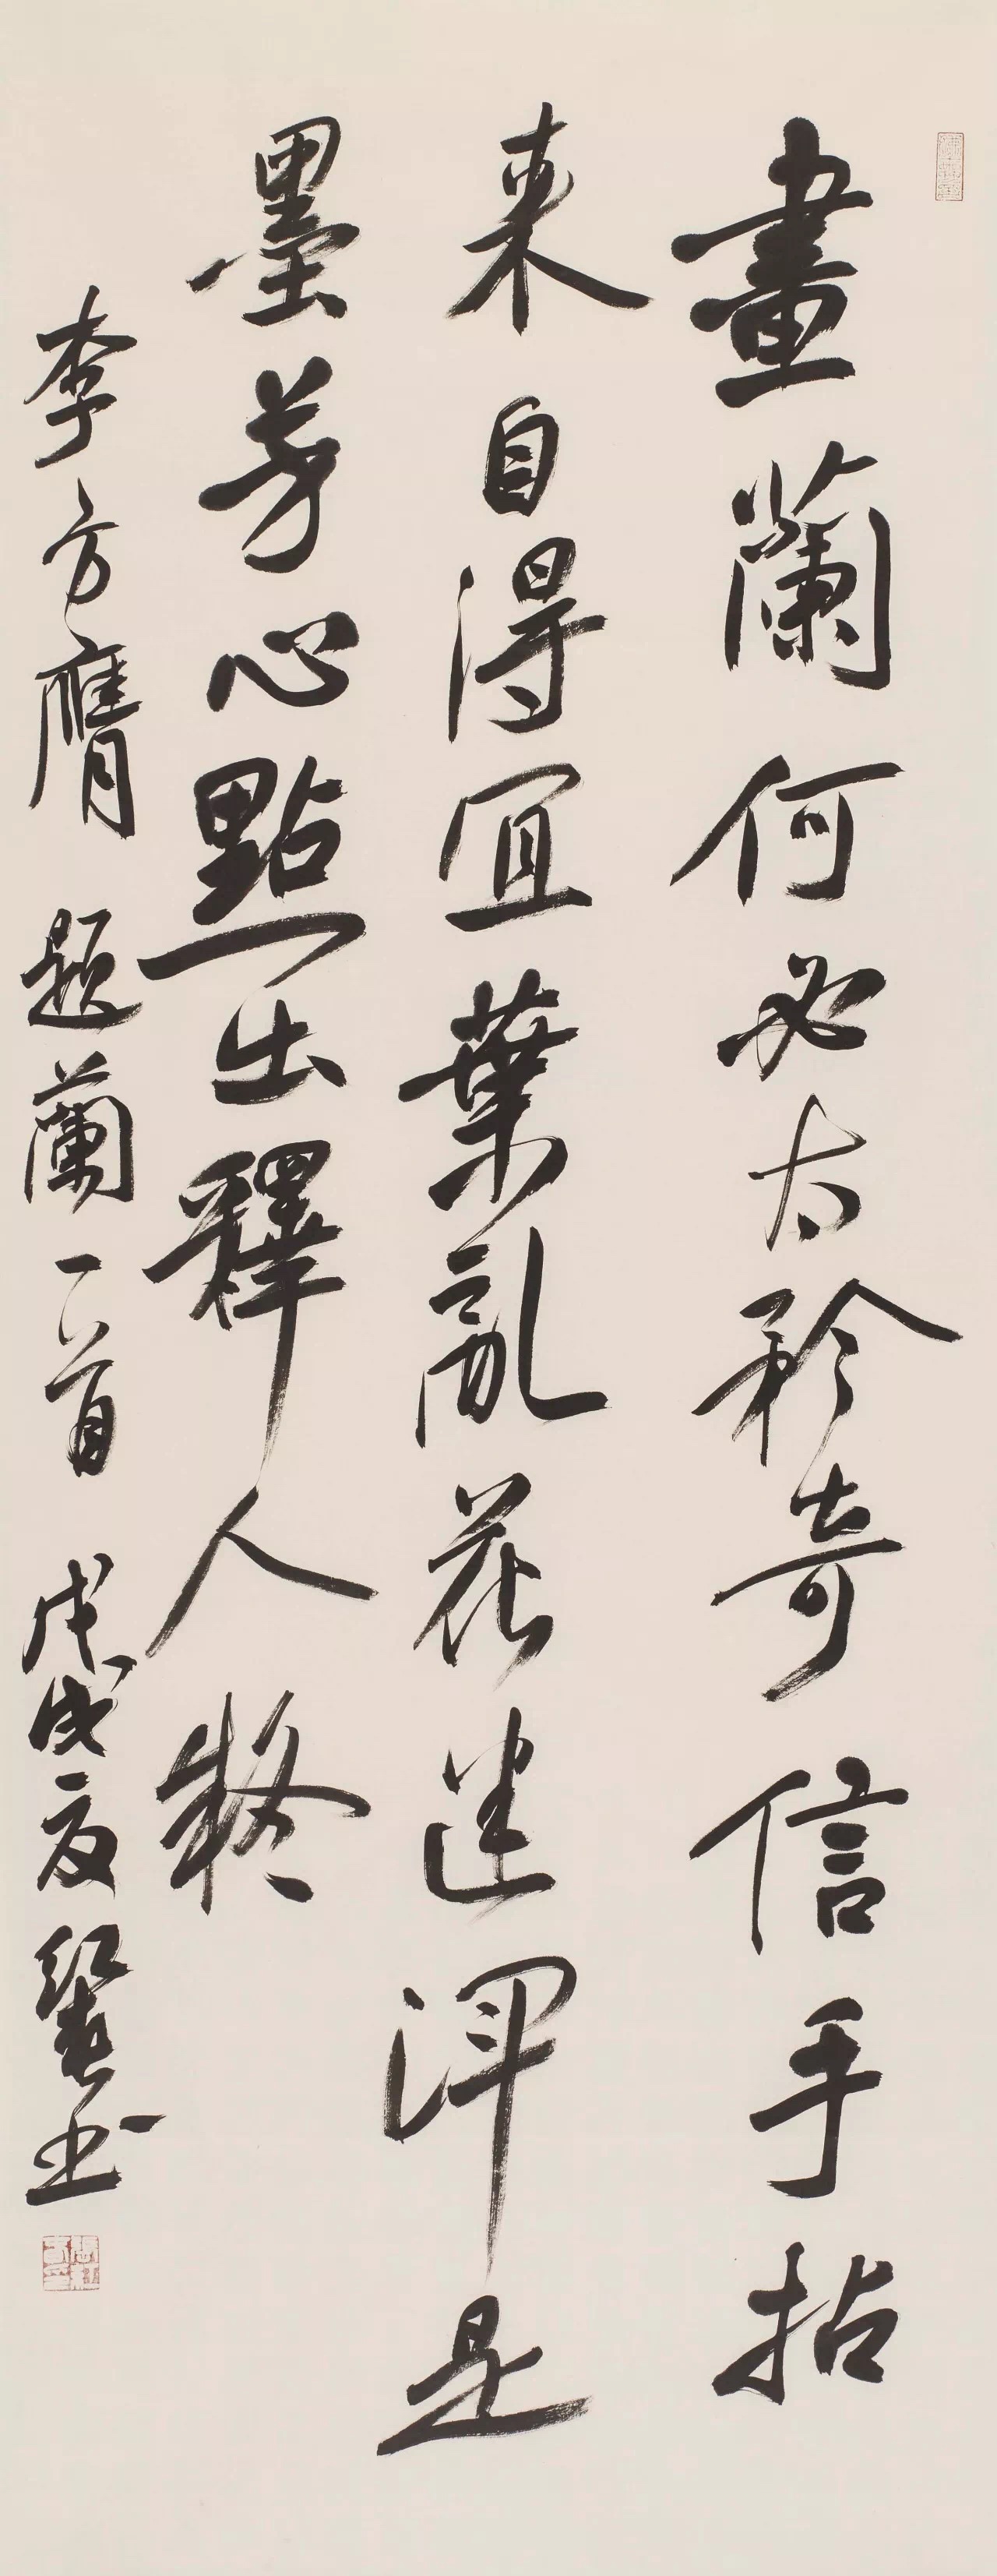 畫蘭何必太矜奇信手拈
来自得宜葉亂花迷渾是
墨芳心點出釋人疑
李方膺題蘭一首戊戌夏書